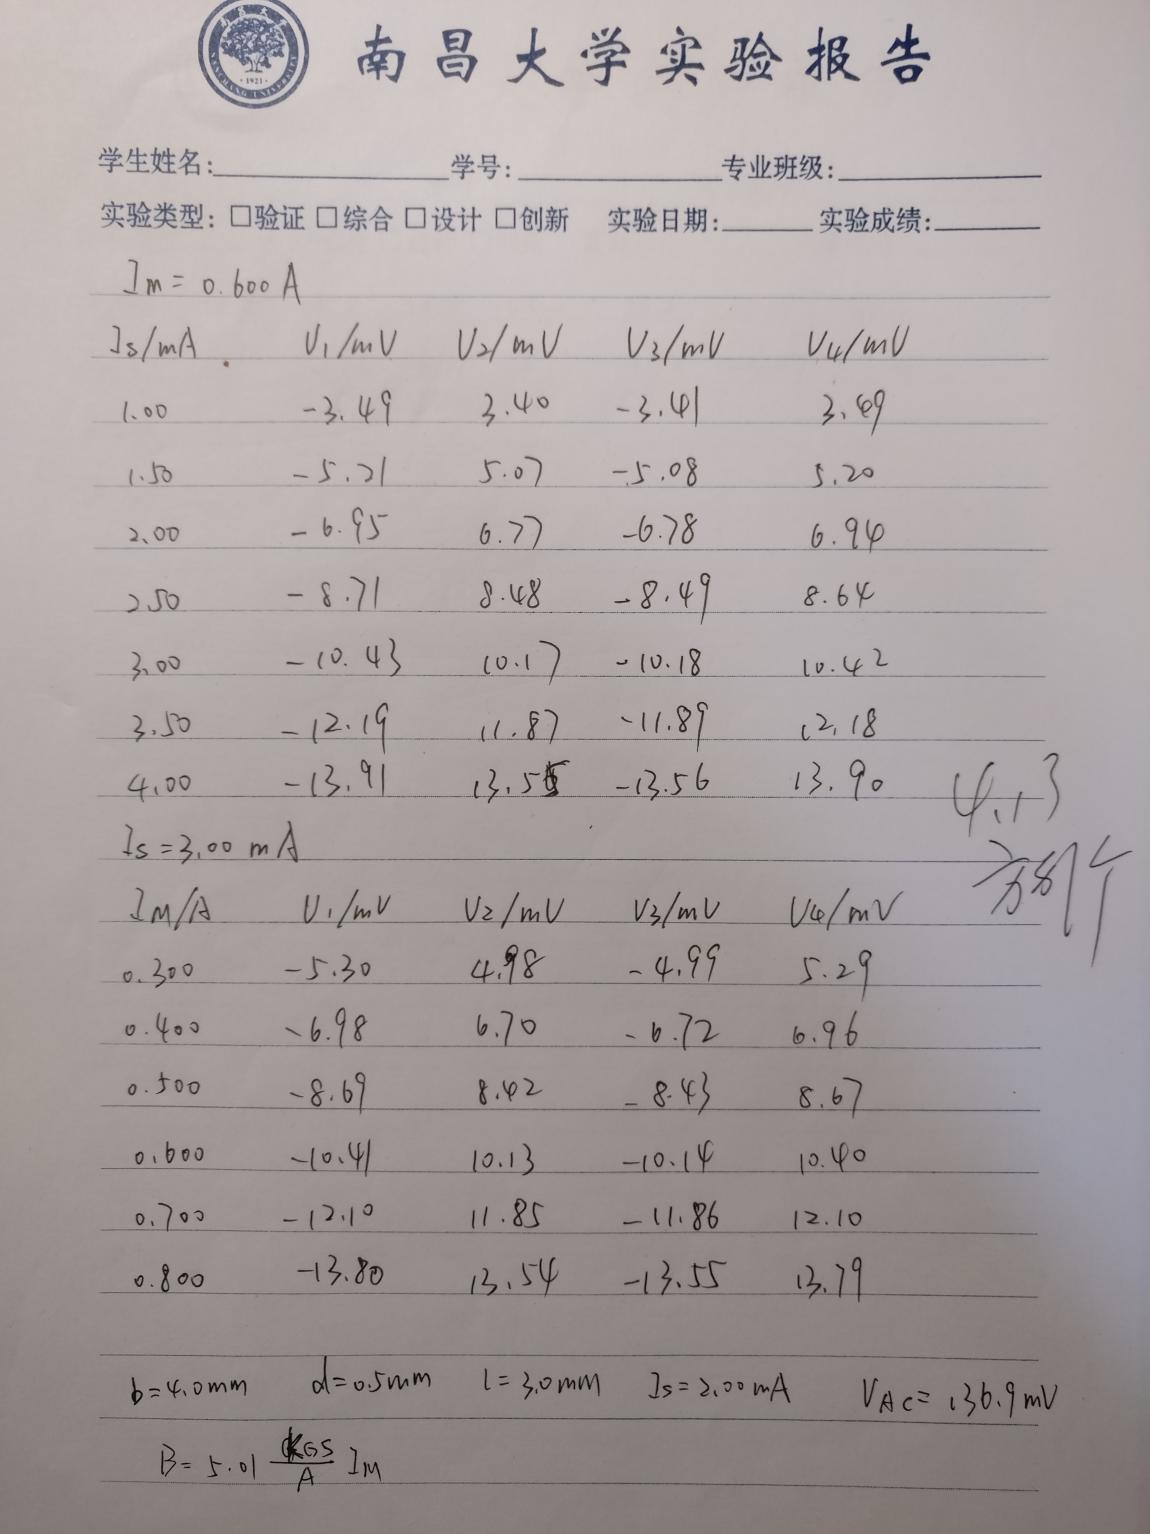 NANCHANG UNIVERSITY
·1921·
南昌大学实验报告
学生姓名: 学号: 专业班级:
实验类型: □验证 □综合 □设计 □创新 实验日期: 实验成绩:
Im = 0.600 A
Is/mA V1/mV V2/mV V3/mV V4/mV
1.00 -3.49 3.40 -3.41 3.49
1.50 -5.21 5.07 -5.08 5.20
2.00 -6.95 6.77 -6.78 6.94
2.50 -8.71 8.48 -8.49 8.64
3.00 -10.43 10.17 -10.18 10.42
3.50 -12.19 11.87 -11.89 12.18
4.00 -13.91 13.55 -13.56 13.90
4.13
Is = 3.00 mA
IM/A V1/mV V2/mV V3/mV V4/mV
0.300 -5.30 4.98 -4.99 5.29
0.400 -6.98 6.70 -6.72 6.96
0.500 -8.69 8.42 -8.43 8.67
0.600 -10.41 10.13 -10.14 10.40
0.700 -12.10 11.85 -11.86 12.10
0.800 -13.80 13.54 -13.55 13.79
b=4.0mm d=0.5mm l=3.0mm Is=2.00mA VAC=136.9mV
B=5.01 KGS/A IM